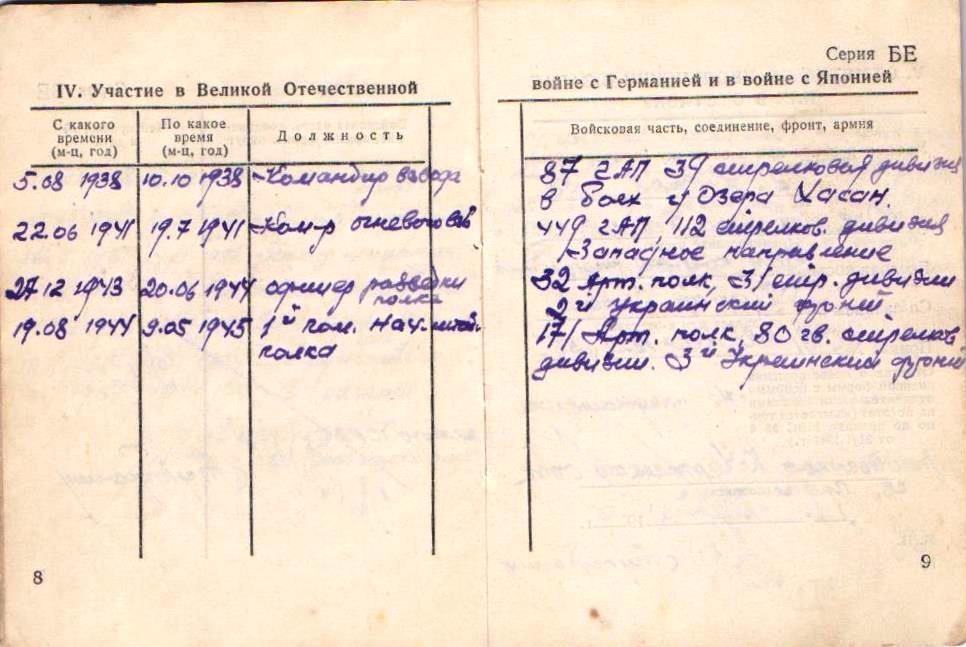 Серия БЕ
IV. Участие в Великой Отечественной
войне с Германией и в войне с Японией
С какого времени (м-ц, год)
По какое время (м-ц, год)
Должность
Войсковая часть, соединение, фронт, армия
5.08 1938 10.10 1938 Командир взвода
87 гАП 39 стрелковая дивизия
в боях у Озера Хасан.
22.06 1941 19.7 1941 Ком-р огневого взв
449 гАП 112 стрелков. дивизия
Западное направление
27.12 1943 20.06 1944 офицер разведки
полка
32 Арт. полк, 31 стр. дивизии
2й Украинский фронт.
19.08 1944 9.05 1945 1й пом. нач. штаб.
полка
171 Арт. полк, 80 гв. стрелков.
дивизии. 3й Украинский фронт
8
9